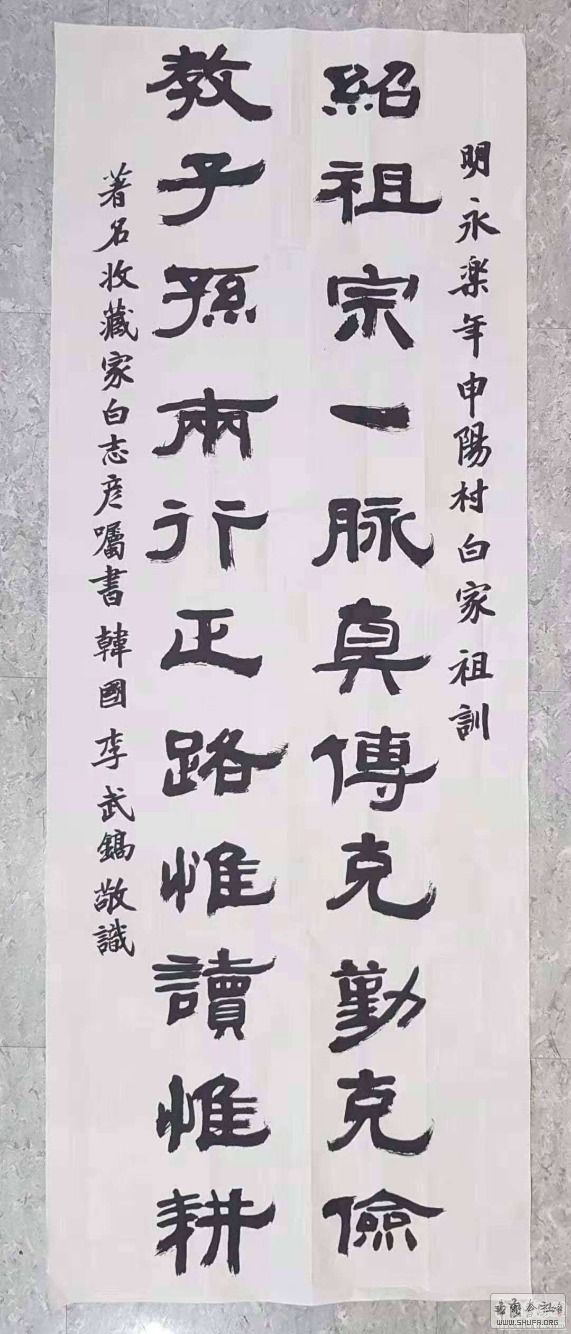 明永樂年申陽村白家祖訓
紹祖宗一脉真傳克勤克儉
教子孫兩行正路惟讀惟耕
著名收藏家白志彦囑書韓國李武鎬敬識
WWW.SHUFA.ORG